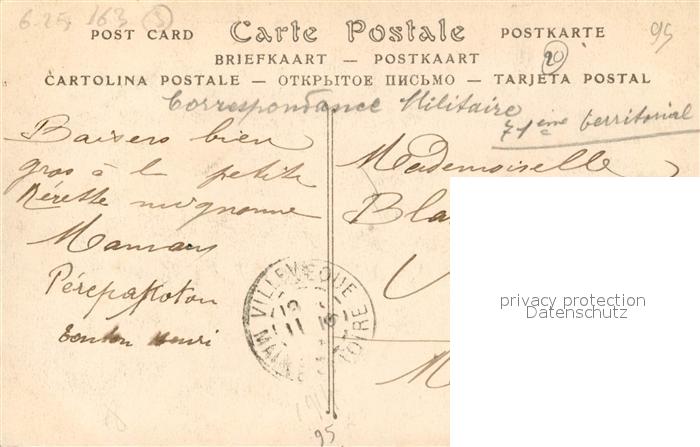 6.25, 163 S
95
POST CARD Carte Postale POSTKARTE
20
BRIEFKAART — POSTKAART
CARTOLINA POSTALE — ОТКРЫТОЕ ПИСЬМО — TARJETA POSTAL
Correspondance Militaire
71ème territorial
Baisers bien
gros à la petite
mignonne
Maman
Pérepakoton
tonton Henri
Mademoiselle
Bla
V
M
VILLEVEQUE
MAINE LOIRE
95
privacy protection
Datenschutz